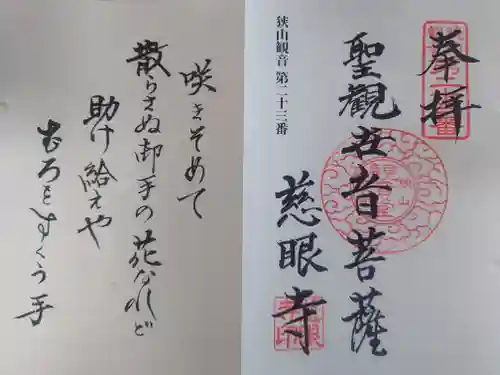 奉拝
聖觀世音菩薩
慈眼寺
狭山観音 第二十三番
咲きそめて
散らさぬ御手の花なれど
助け給えや
もろをすくう手